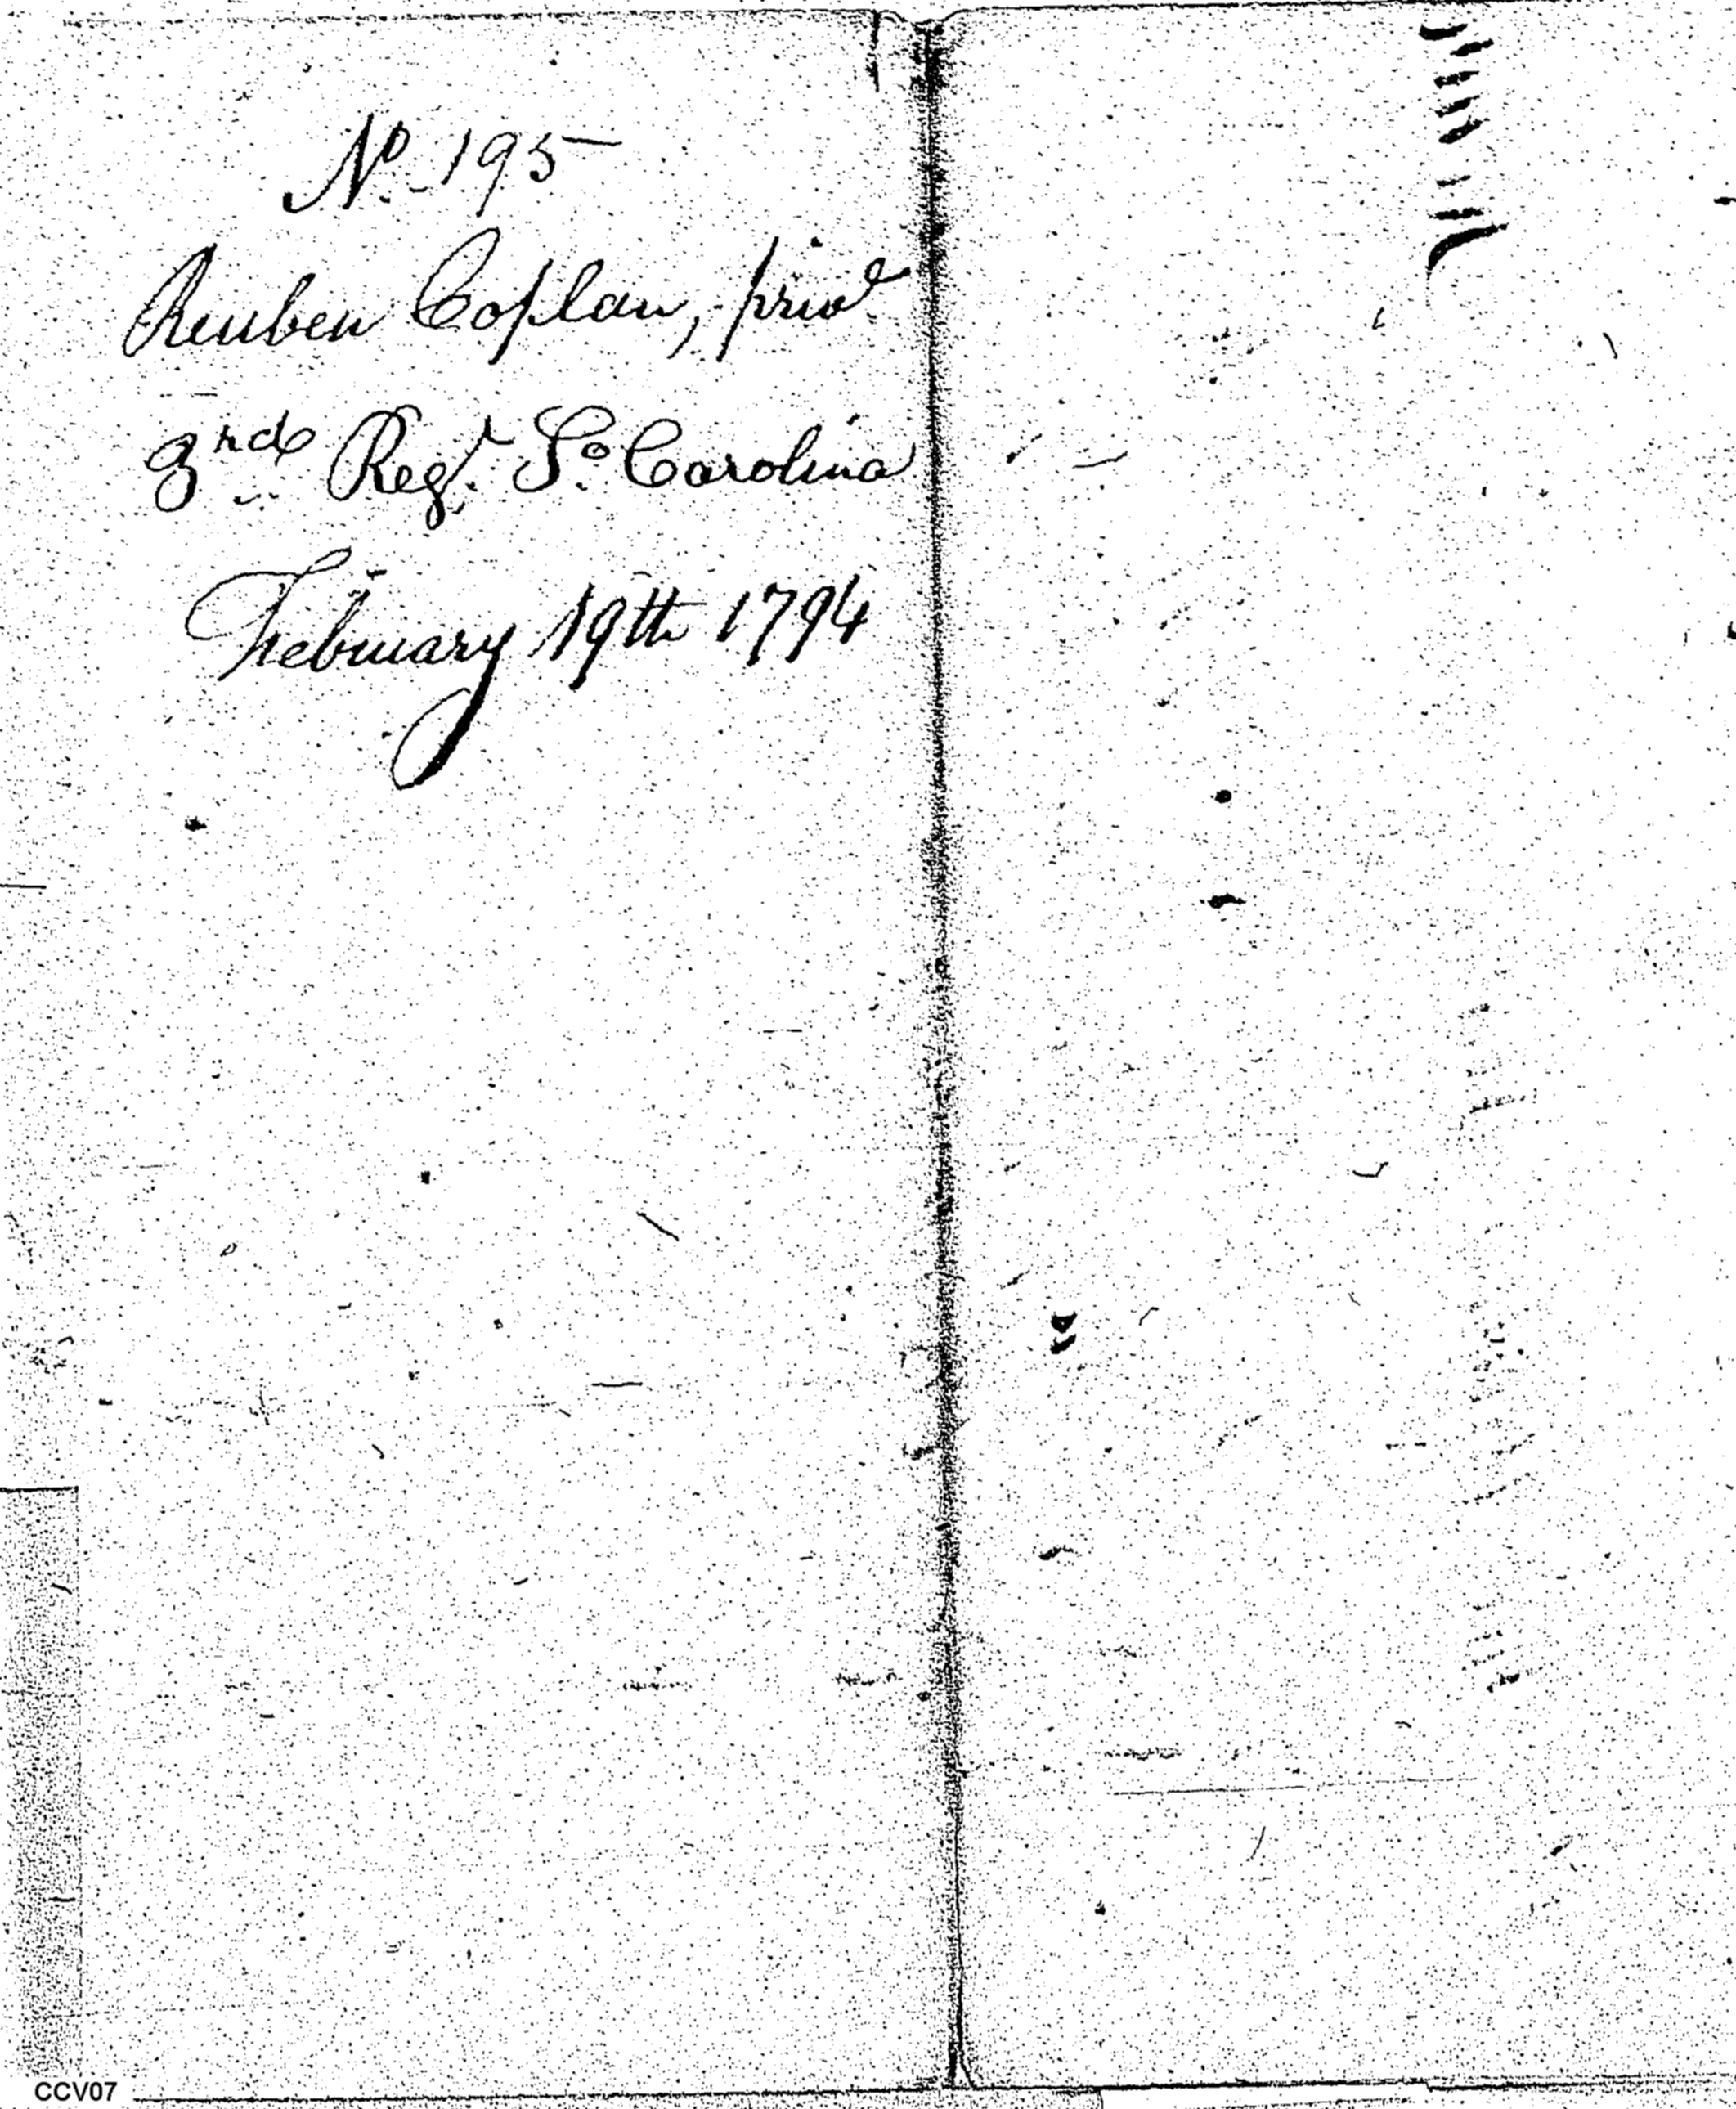 No. 195
Reuben Coplan, prive
3rd Regt. So. Carolina
February 19th 1794
CCV07